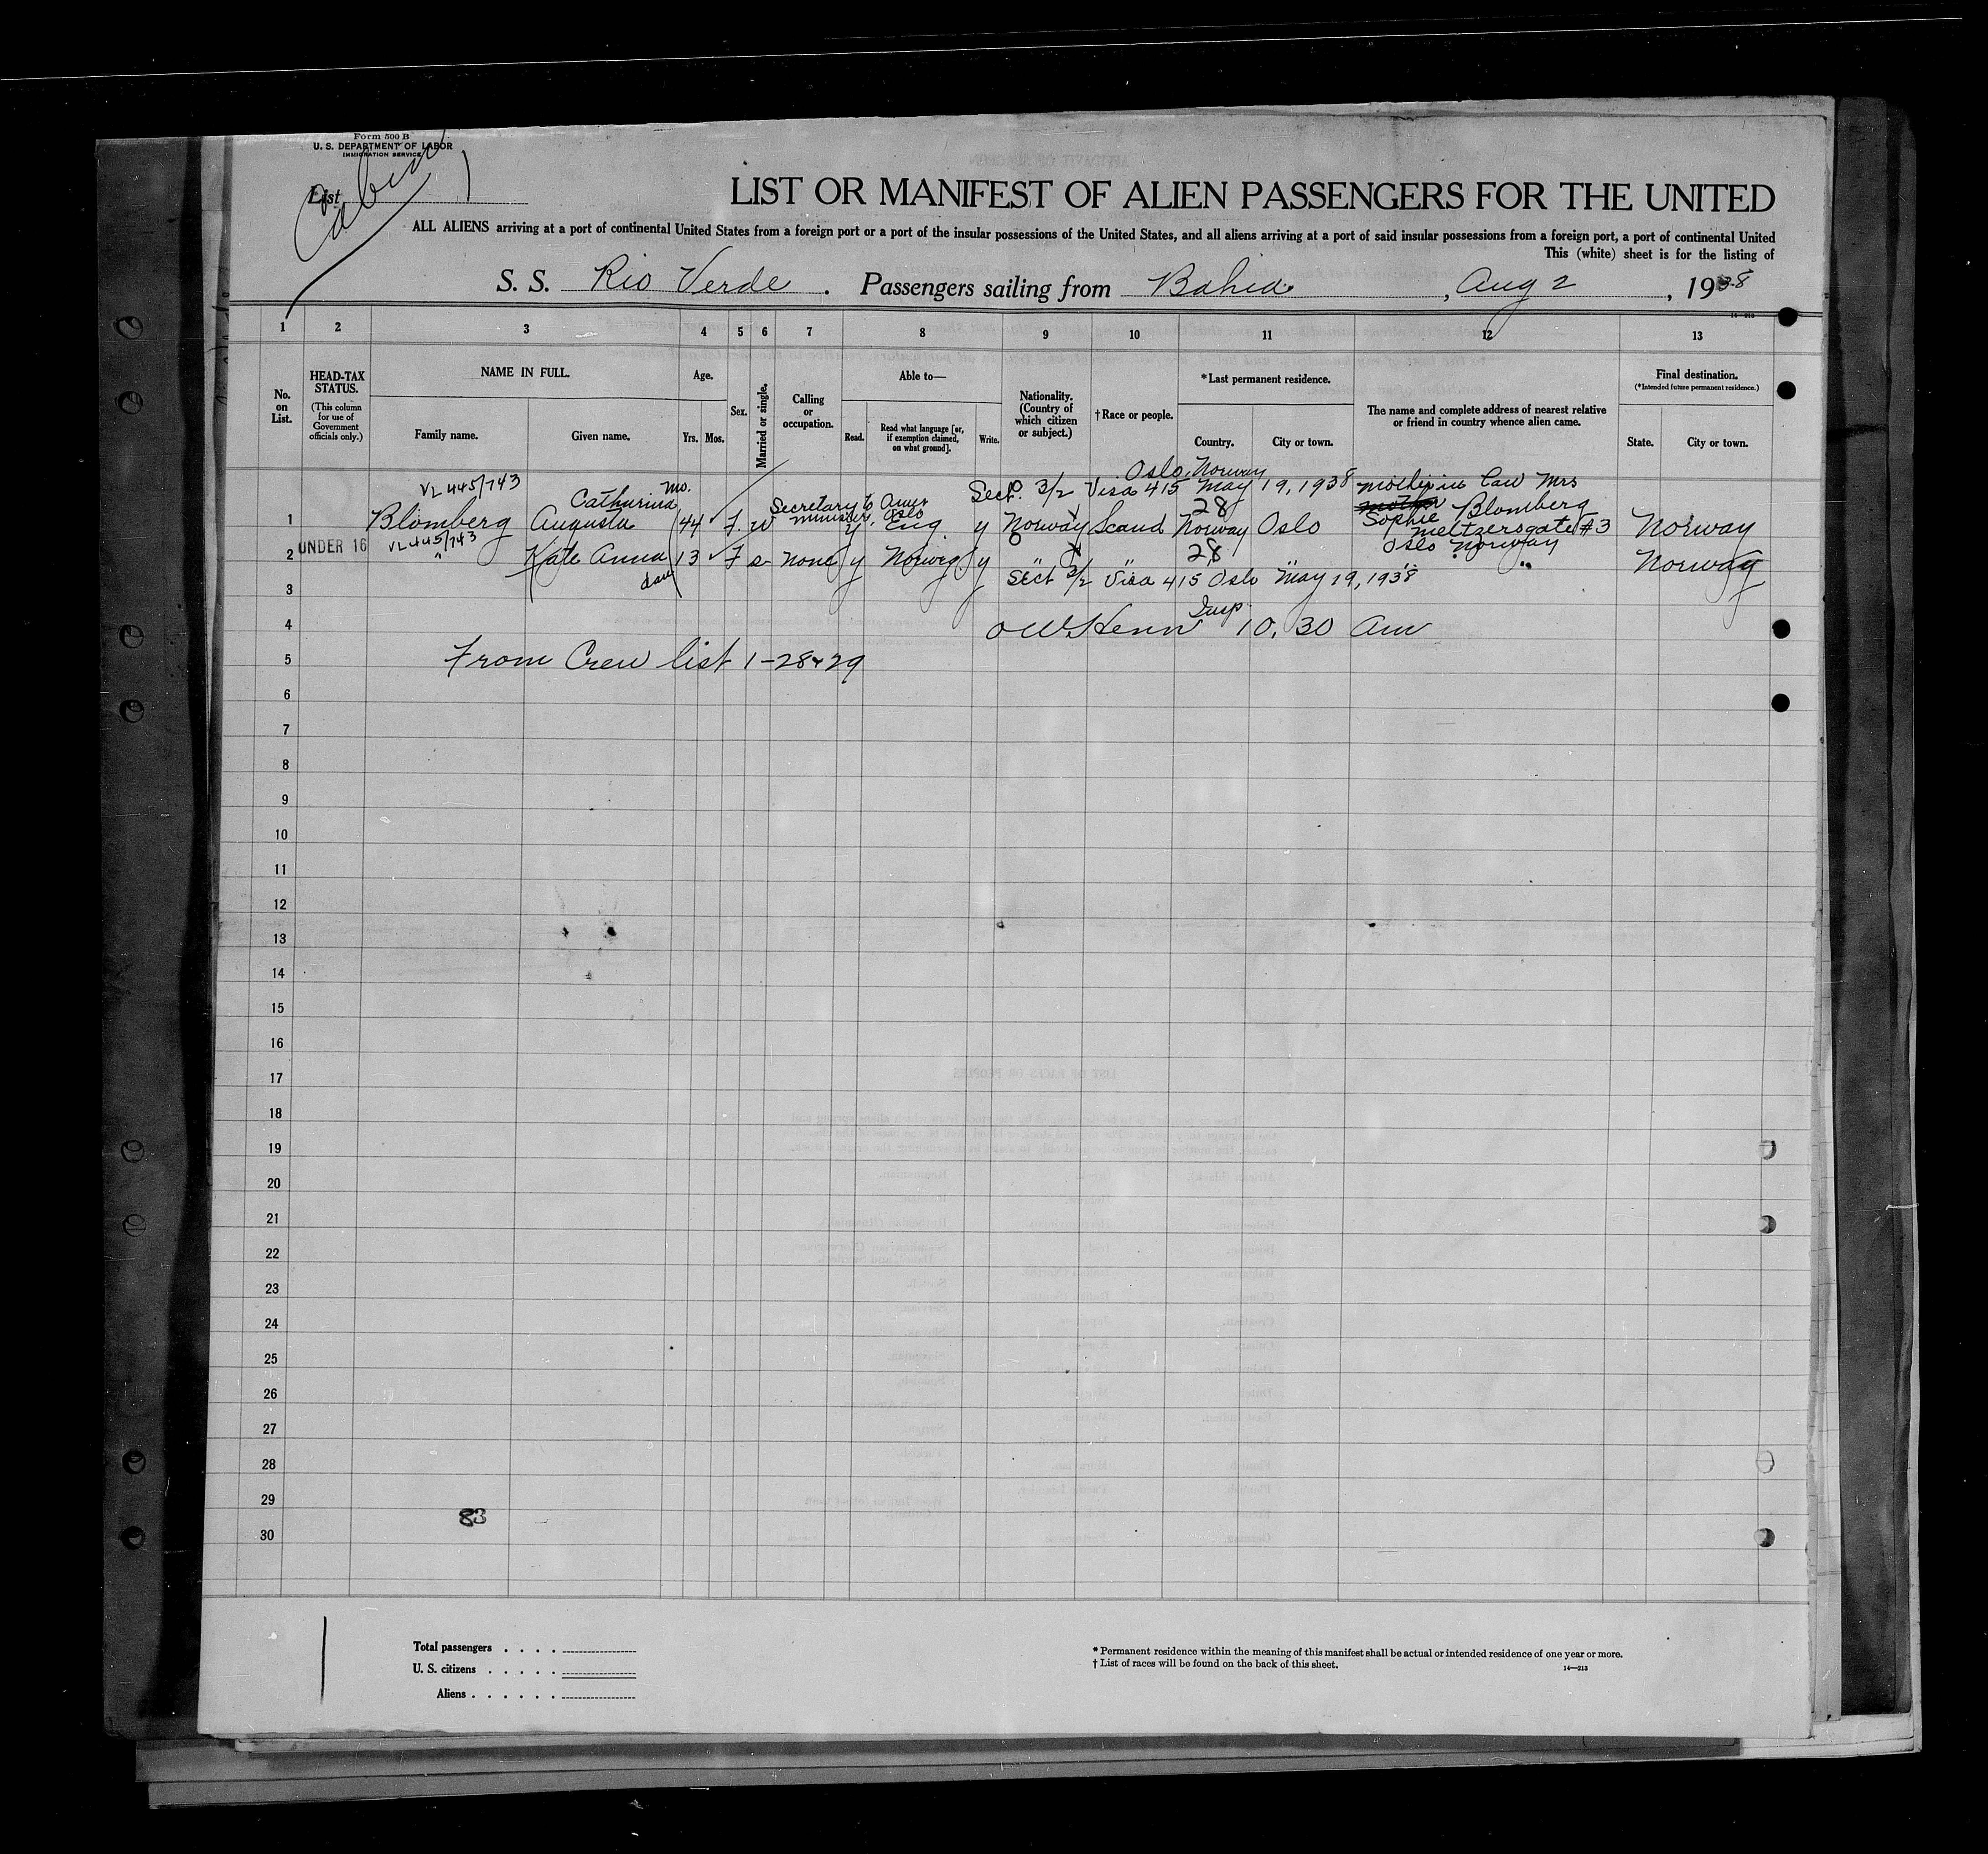 Form 500 B
U. S. DEPARTMENT OF LABOR
IMMIGRATION SERVICE
List
Cabin
LIST OR MANIFEST OF ALIEN PASSENGERS FOR THE UNITED
ALL ALIENS arriving at a port of continental United States from a foreign port or a port of the insular possessions of the United States, and all aliens arriving at a port of said insular possessions from a foreign port, a port of continental United
This (white) sheet is for the listing of
S. S. Rio Verde. Passengers sailing from Bahia, Aug 2, 1938
14—213
1 2 3 4 5 6 7 8 9 10 11 12 13
No. on List.
HEAD-TAX STATUS.
(This column for use of Government officials only.)
NAME IN FULL.
Family name. Given name.
Age.
Yrs. Mos.
Sex.
Married or single.
Calling or occupation.
Able to—
Read. Read what language [or, if exemption claimed, on what ground]. Write.
Nationality. (Country of which citizen or subject.)
†Race or people.
*Last permanent residence.
Country. City or town.
The name and complete address of nearest relative or friend in country whence alien came.
Final destination.
(*Intended future permanent residence.)
State. City or town.
Oslo, Norway
VL 445/743 Mo. Sect. 3/2 Visa 415 May 19, 1938 Mother in Law Mrs
1 Blomberg Catharina Augusta 44 F. W Secretary to Amer minister, Oslo y Eng y Norway Scand 28 Norway Oslo Sophie Blomberg Meltzersgate #3 Oslo Norway Norway
UNDER 16 VL 445/743
2 " Kate Anna 13 F s none y Norweg. y " " 28 " " " Norway
dau
3 Sect 3/2 Visa 415 Oslo May 19, 1938
4 O W Henn Insp 10,30 am
5 From Crew list 1-28+29
6
7
8
9
10
11
12
13
14
15
16
17
18
19
20
21
22
23
24
25
26
27
28
29
83
30
Total passengers . . . .
U. S. citizens . . . . .
Aliens . . . . . .
* Permanent residence within the meaning of this manifest shall be actual or intended residence of one year or more.
† List of races will be found on the back of this sheet.
14—213